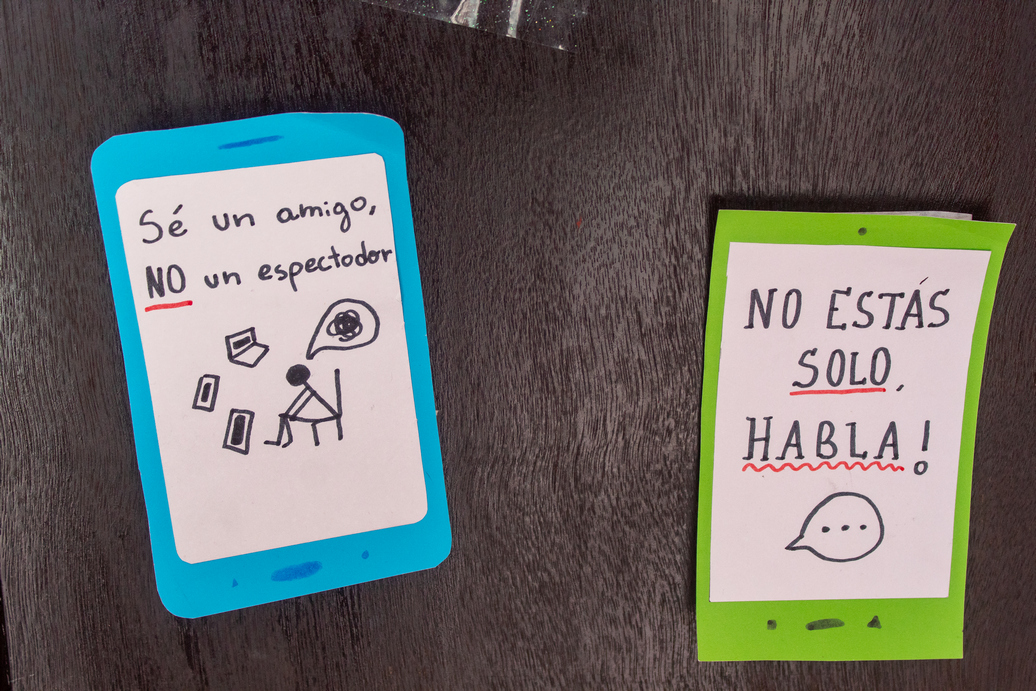 Sé un amigo,
NO un espectodor
NO ESTÁS
SOLO,
HABLA!